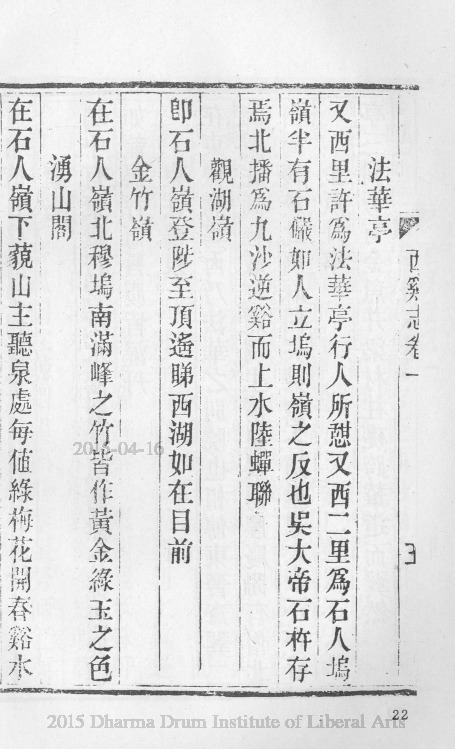 西谿志卷一
法華亭
又西里許爲法華亭行人所憇又西二里爲石人塢
嶺半有石儼如人立塢則嶺之反也吳大帝石杵存
焉北播爲九沙逆谿而上水陸蟬聯
觀湖嶺
卽石人嶺登陟至頂遙睇西湖如在目前
金竹嶺
在石人嶺北穆塢南滿峰之竹皆作黃金綠玉之色
湧山閣
在石人嶺下藐山主聽泉處每値綠梅花開春谿水
22
2015 Dharma Drum Institute of Liberal Arts